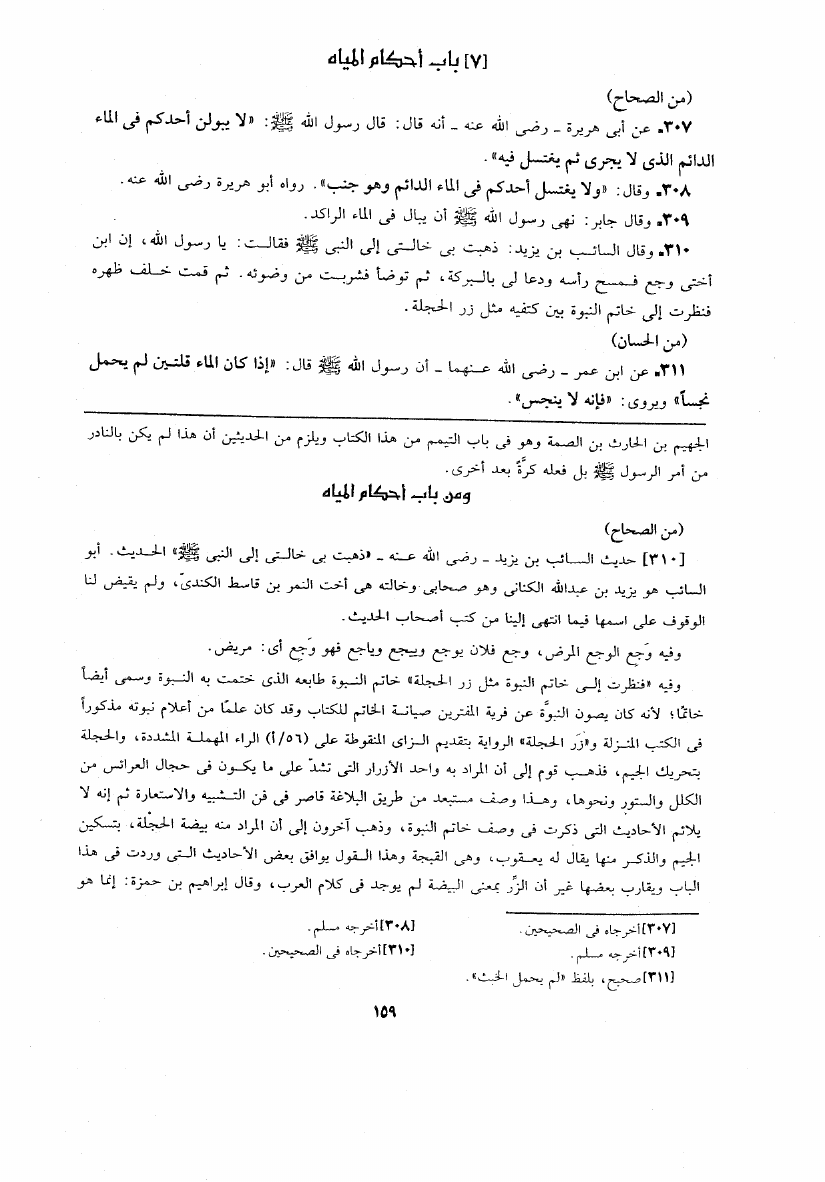 [٧] باب أحكام المياه
(من الصحاح)
٣٠٧ـ عن أبى هريرة ـ رضى الله عنه ـ أنه قال: قال رسول الله ﷺ: «لا يبولن أحدكم فى الماء
الدائم الذى لا يجرى ثم يغتسل فيه».
٣٠٨ـ وقال: «ولا يغتسل أحدكم فى الماء الدائم وهو جنب». رواه أبو هريرة رضى الله عنه.
٣٠٩ـ وقال جابر: نهى رسول الله ﷺ أن يبال فى الماء الراكد.
٣١٠ـ وقال السائب بن يزيد: ذهبت بى خالتى إلى النبى ﷺ فقالت: يا رسول الله، إن ابن
أختى وجع فمسح رأسه ودعا لى بالبركة، ثم توضأ فشربت من وضوئه. ثم قمت خلف ظهره
فنظرت إلى خاتم النبوة بين كتفيه مثل زر الحجلة.
(من الحسان)
٣١١ـ عن ابن عمر ـ رضى الله عنهما ـ أن رسول الله ﷺ قال: «إذا كان الماء قلتين لم يحمل
نجساً» ويروى: «فإنه لا ينجس».
الجهيم بن الحارث بن الصمة وهو فى باب التيمم من هذا الكتاب ويلزم من الحديثين أن هذا لم يكن بالنادر
من أمر الرسول ﷺ بل فعله كرَّةً بعد أخرى.
ومن باب أحكام المياه
(من الصحاح)
[٣١٠] حديث السائب بن يزيد ـ رضى الله عنه ـ «ذهبت بى خالتى إلى النبى ﷺ» الحديث. أبو
السائب هو يزيد بن عبدالله الكنانى وهو صحابى وخالته هى أخت النمر بن قاسط الكندىّ، ولم يقيض لنا
الوقوف على اسمها فيما انتهى إلينا من كتب أصحاب الحديث.
وفيه وَجع الوجع المرض، وجع فلان يوجع وييجع وياجع فهو وَجع أى: مريض.
وفيه «فنظرت إلى خاتم النبوة مثل زر الحجلة» خاتم النبوة طابعه الذى ختمت به النبوة وسمى أيضاً
خاتمًا؛ لأنه كان يصون النبوَّة عن فرية المفترين صيانة الخاتم للكتاب وقد كان علمًا من أعلام نبوته مذكوراً
فى الكتب المنزلة و«زَر الحجلة» الرواية بتقديم الزاى المنقوطة على (٥٦/أ) الراء المهملة المشددة، والحجلة
بتحريك الجيم، فذهب قوم إلى أن المراد به واحد الأزرار التى تشدّ على ما يكون فى حجال العرائس من
الكلل والستور ونحوها، وهذا وصف مستبعد من طريق البلاغة قاصر فى فن التشبيه والاستعارة ثم إنه لا
يلائم الأحاديث التى ذكرت فى وصف خاتم النبوة، وذهب آخرون إلى أن المراد منه بيضة الحجْلة، بتسكين
الجيم والذكر منها يقال له يعقوب، وهى القبجة وهذا القول يوافق بعض الأحاديث التى وردت فى هذا
الباب ويقارب بعضها غير أن الزِّر بمعنى البيضة لم يوجد فى كلام العرب، وقال إبراهيم بن حمزة: إنما هو
[٣٠٧] أخرجاه فى الصحيحين. [٣٠٨] أخرجه مسلم.
[٣٠٩] أخرجه مسلم. [٣١٠] أخرجاه فى الصحيحين.
[٣١١] صحيح، بلفظ «لم يحمل الخبث».
١٥٩